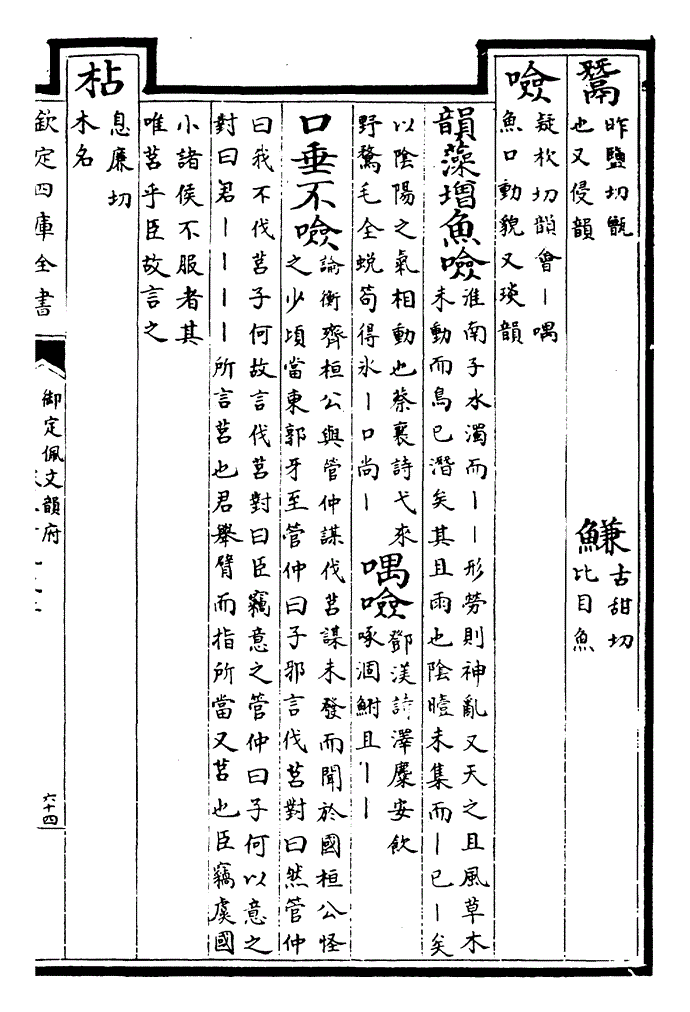 鬵
昨鹽切甑
也又侵韻
鰜
古甜切
比目魚
噞
疑杴切韻會丨喁
魚口動貌又琰韻
韻藻增魚噞
淮南子水濁而丨丨形勞則神亂又天之且風草木
未動而鳥已潛矣其且雨也陰曀未集而丨已丨矣
以陰陽之氣相動也蔡襄詩弋來
野鶩毛全蛻笱得氷丨口尚丨
喁噞
鄧漢詩澤麋安飲
啄涸鮒且丨丨
口垂不噞
論衡齊桓公與管仲謀伐莒謀未發而聞於國桓公怪
之少頃當東郭牙至管仲曰子邪言伐莒對曰然管仲
曰我不伐莒子何故言伐莒對曰臣竊意之管仲曰子何以意之
對曰君丨丨丨丨所言莒也君舉臂而指所當又莒也臣竊虞國
小諸侯不服者其
唯莒乎臣故言之
枮
息廉切
木名
欽定四庫全書
御定佩文韻府
六十四